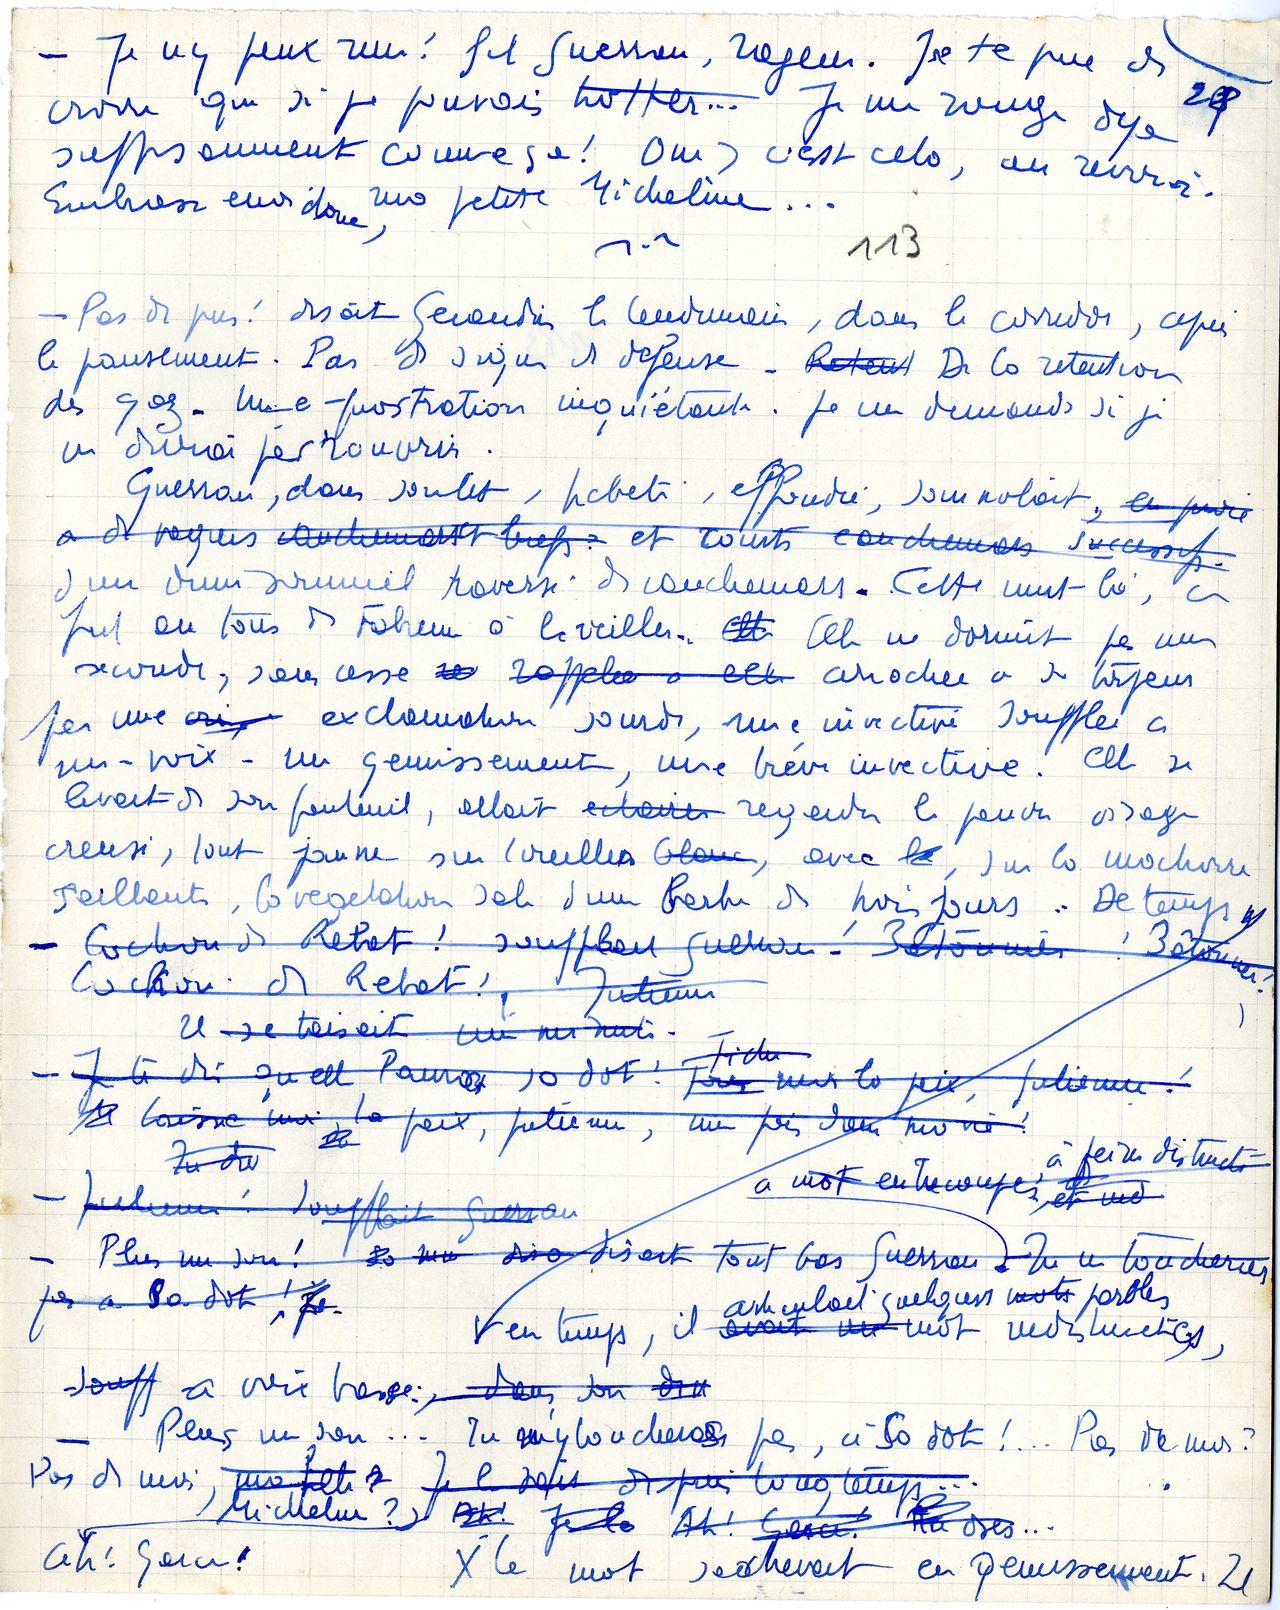 — Je n'y peux rien! fit Guerran, rageur. Je te prie de
croire que si je pouvais trotter... Je me ronge déjà
28
suffisamment comme ça! Oui, c'est cela, au revoir.
Embrasse donc, ma petite Micheline...
113
— Pas de pus! disait Geraudin le lendemain, dans le corridor, après
le pansement. Pas de signe de défense. Retent De la rétention
des gaz. Une prostration inquiétante. Je me demande si je
ne devrai pas rouvrir.
Guerran, dans son lit, hébété, effondré, somnolait,
a de vagues cauchemars et courts cauchemars successifs
d'un demi sommeil traversé de cauchemars. Cette nuit là, ce
fut au tour de Fabienne à le veiller. Elle Elle ne dormit pas une
seconde, sans cesse rappelée a elle arrachée a sa torpeur
par une exclamation sourde, une invective soufflée a
mi-voix - un gémissement, une brève invective. Elle se
levait de son fauteuil, allait eclairer regarder le pauvre visage
creusé, tout jaune sur l'oreiller blanc, avec, sur la machoire
saillante, la végétation sale d'une barbe de trois jours. De temps
— Cochon de Rebat! soufflait Guerran!
Cochon de Rebat! Julienne
Il se taisait une minute.
— Je te dis qu'elle Paura sa dot! Fiche moi la paix, Julienne!
laisse moi la paix, Julienne,
Tu
a mots entrecoupés, à peine distincts
— Julienne! soufflait Guerran
— Plus un sou! disait tout bas Guerran. Tu ne toucheras
pas a sa dot!
articulait quelques mots paroles
en temps, il avait un mot indistinctes,
souff à voix basse, dans son
— Plus un sou... Tu n'y toucheras pas, à sa dot!... Pas de moi?
Pas de moi, Je le sais depuis longtemps...
Micheline? Ah! Je le Ah! Garce! Tu oses...
Ah! Garce! X le mot s'achevait en gémissement. Il